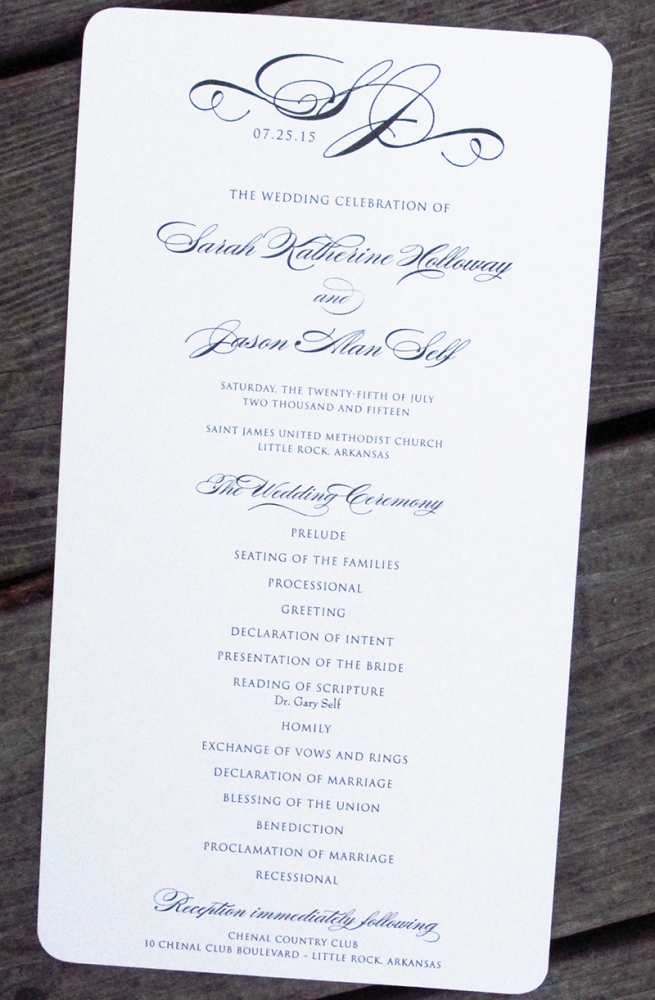 SJ
07.25.15
THE WEDDING CELEBRATION OF
Sarah Katherine Holloway
and
Jason Alan Self
SATURDAY, THE TWENTY-FIFTH OF JULY
TWO THOUSAND AND FIFTEEN
SAINT JAMES UNITED METHODIST CHURCH
LITTLE ROCK, ARKANSAS
The Wedding Ceremony
PRELUDE
SEATING OF THE FAMILIES
PROCESSIONAL
GREETING
DECLARATION OF INTENT
PRESENTATION OF THE BRIDE
READING OF SCRIPTURE
Dr. Gary Self
HOMILY
EXCHANGE OF VOWS AND RINGS
DECLARATION OF MARRIAGE
BLESSING OF THE UNION
BENEDICTION
PROCLAMATION OF MARRIAGE
RECESSIONAL
Reception immediately following
CHENAL COUNTRY CLUB
10 CHENAL CLUB BOULEVARD ~ LITTLE ROCK, ARKANSAS